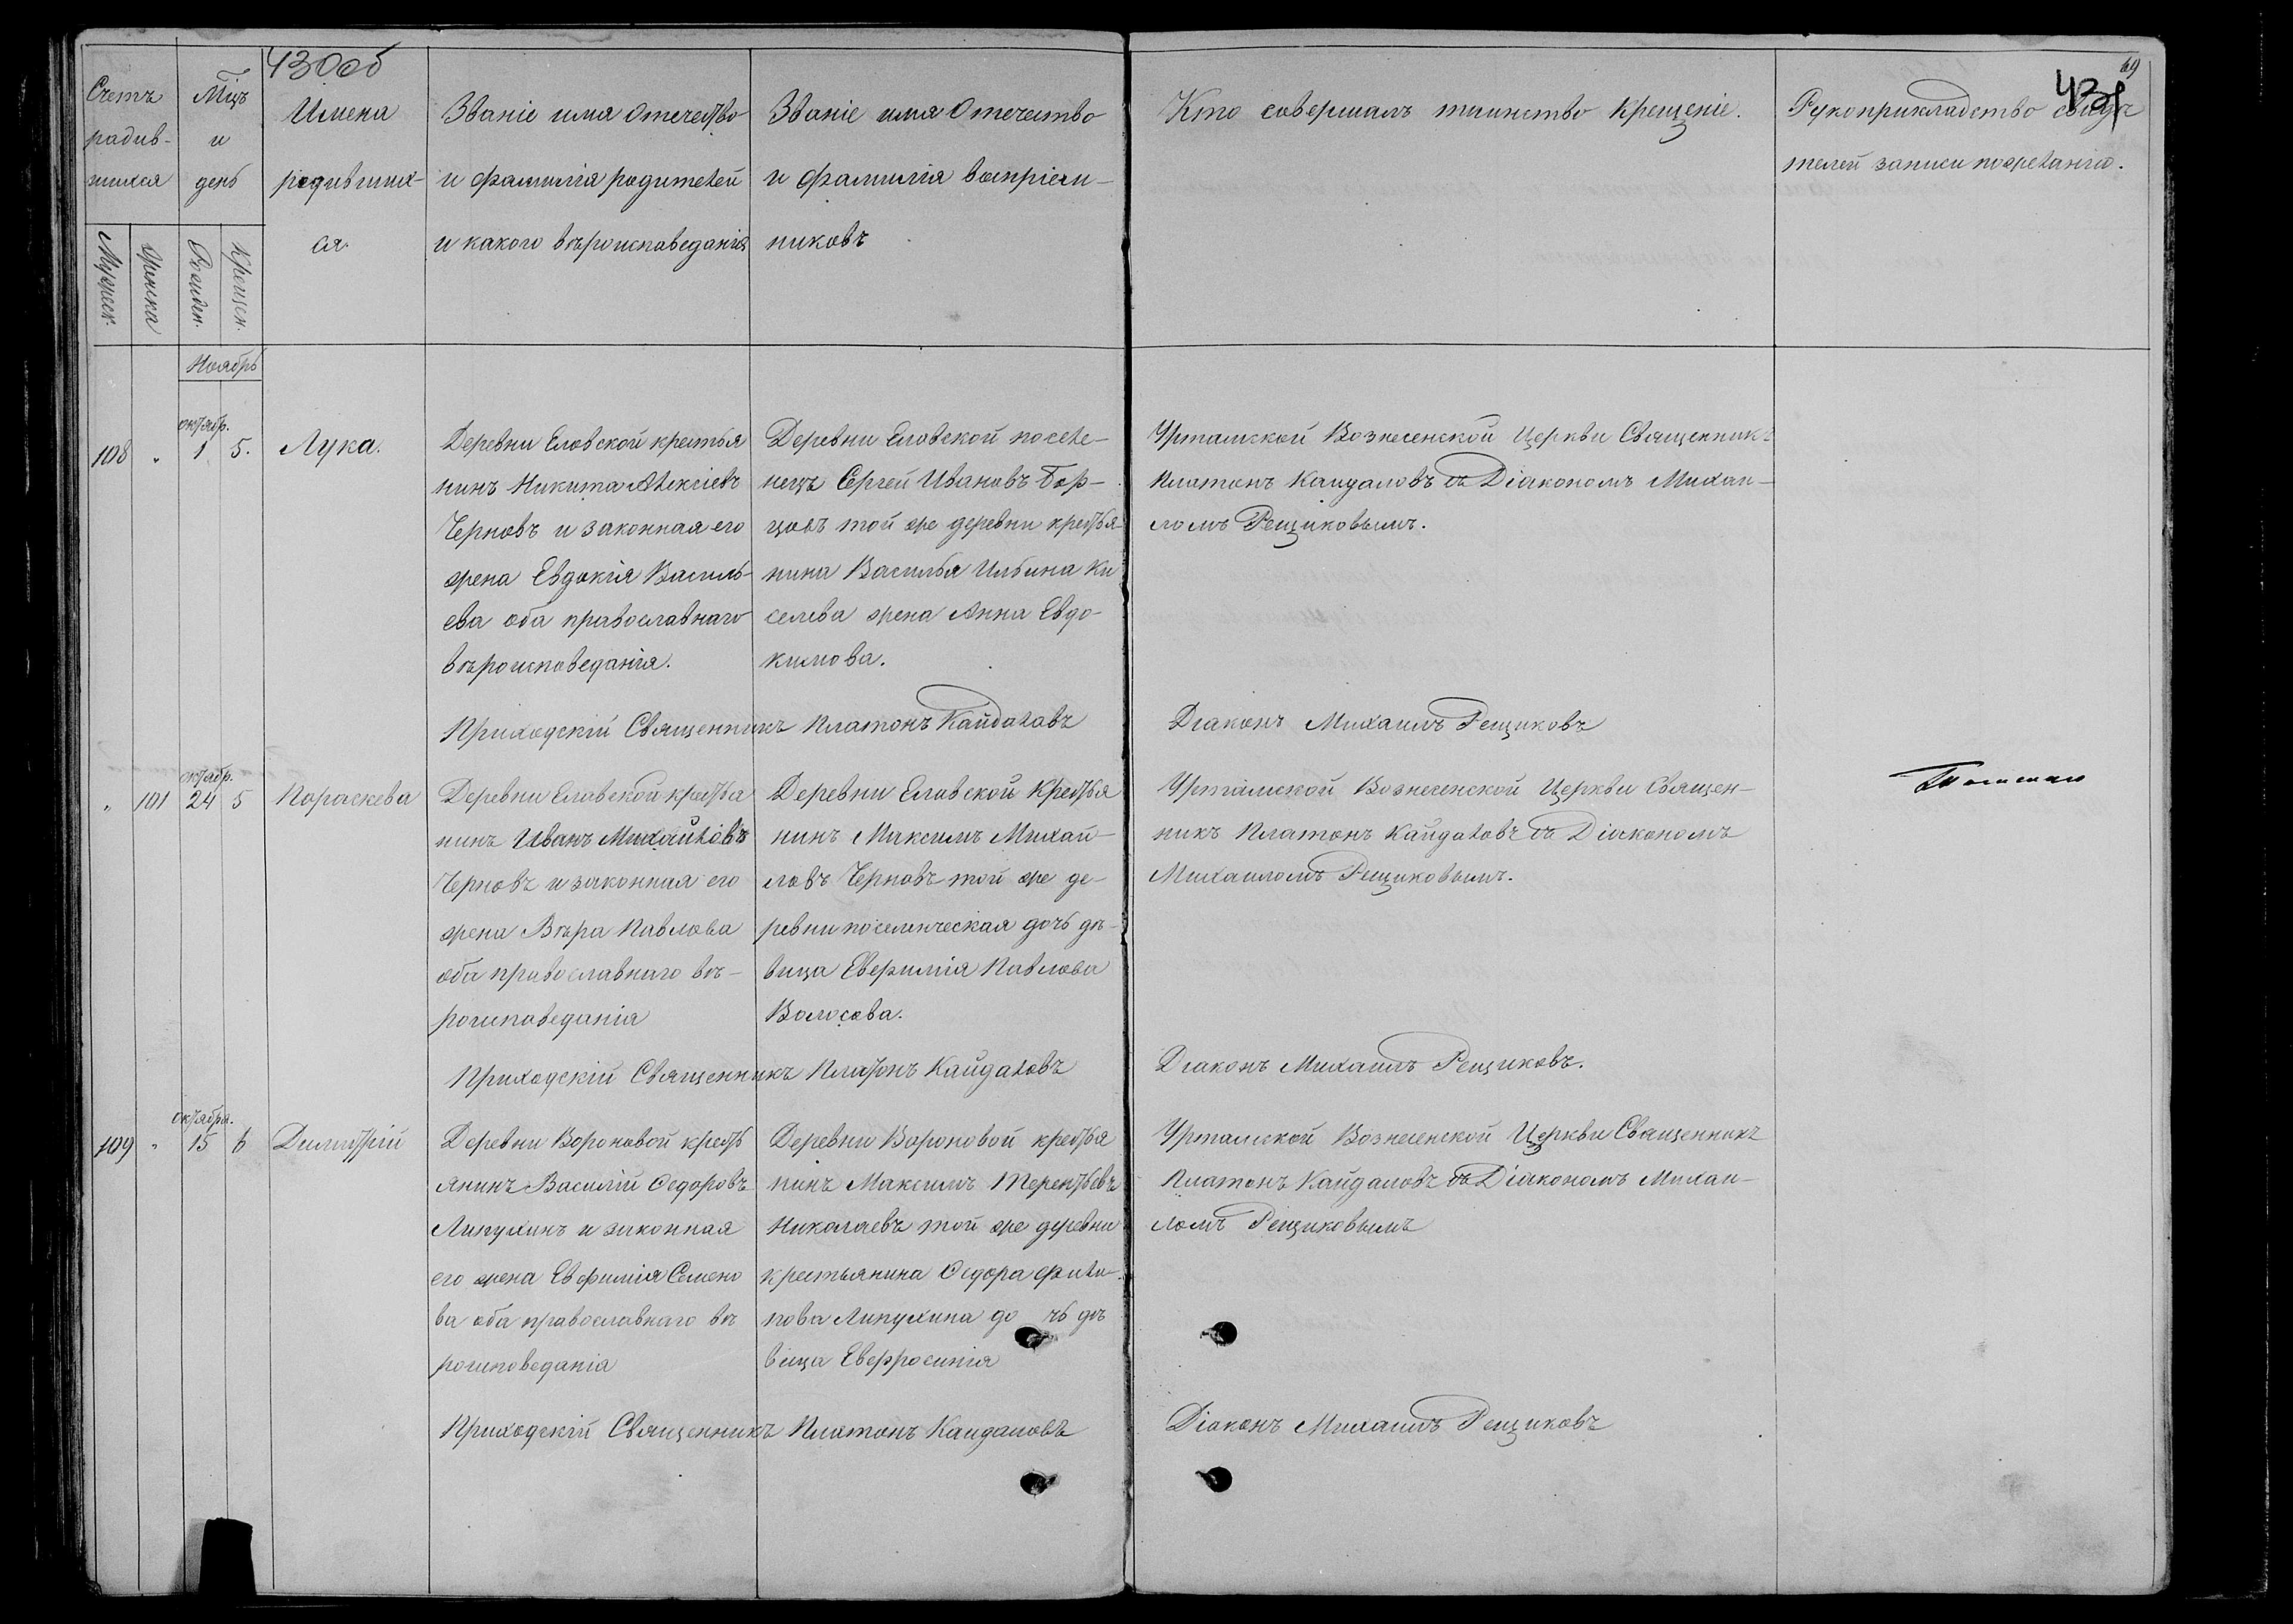 430об
69
431
Счетъ
родив-
шихся
Мцъ
и
день
Имена
родивших-
ся.
Званіе имя отечество
и фамилія родителей
и какого вѣроисповеданія
Званіе имя отечество
и фамилія воспріем-
никовъ
Кто совершалъ таинство крещеніе.
Рукоприкладство свидѣ
телей записи по желанію.
Мужеск.
Женска
Рожден.
Крещен.
Ноябрь
октябр.
108 " 1 5. Лука.
Деревни Еловской крестья
нинъ Никита Алексіевъ
Черновъ и законная его
жена Евдокія Василь-
ева оба православнаго
вѣроисповеданія.
Деревни Еловской поселе-
нецъ Сергей Ивановъ Бор-
цовъ той же деревни крестья-
нина Василья Ильина Ки
селева жена Анна Евдо-
кимова.
Уртамской Вознесенской Церкви Священникъ
Платонъ Кайдаловъ съ Діакономъ Михаи-
ломъ Рещиковымъ.
Приходскій Священникъ Платонъ Кайдаловъ
Діаконъ Михаилъ Рещиковъ
октябр.
" 101 24 5 Параскева
Деревни Еловской крестья
нинъ Иванъ Михайловъ
Черновъ и законная его
жена Вѣра Павлова
оба православнаго вѣ-
роисповеданія
Деревни Еловской крестья
нинъ Максимъ Михай-
ловъ Черновъ той же де-
ревни поселенческая дочь дѣ-
вица Евфимія Павлова
Волосова.
Уртамской Вознесенской Церкви Священ-
никъ Платонъ Кайдаловъ съ Діакономъ
Михаиломъ Рещиковымъ.
Приходскій Священникъ Платонъ Кайдаловъ
Діаконъ Михаилъ Рещиковъ.
октября.
109 " 15 6 Димитрій
Деревни Вороновой кресть
янинъ Василій Федоровъ
Липухинъ и законная
его жена Евфимія Семено
ва оба православнаго вѣ
роисповеданія
Деревни Вороновой крестья
нинъ Максимъ Терентьевъ
Николаевъ той же деревни
крестьянина Федора Фили-
пова Липухина дочь дѣ
вица Евфросинія
Уртамской Вознесенской Церкви Священникъ
Платонъ Кайдаловъ съ Діакономъ Михаи-
ломъ Рещиковымъ
Приходскій Священникъ Платонъ Кайдаловъ
Діаконъ Михаилъ Рещиковъ